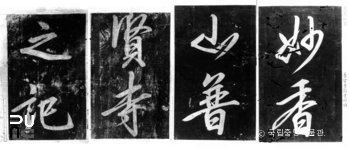 妙香
山普
賢寺
之記
© 국립중앙박물관